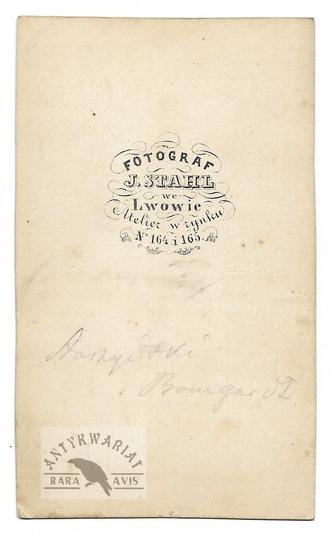 FOTOGRAF
J. STAHL
we
Lwowie
Atelier w rynku
No 164 i 165.
Bomgardt
ANTYKWARIAT
RARA AVIS